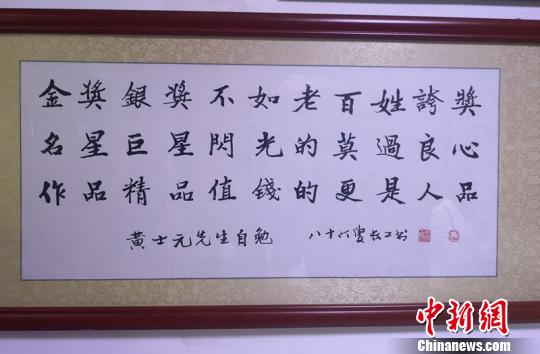 金獎銀獎不如老百姓誇獎
名星巨星閃光的莫過良心
作品精品值錢的更是人品
黄士元先生自勉 八十六叟长工书
中新网
Chinanews.com